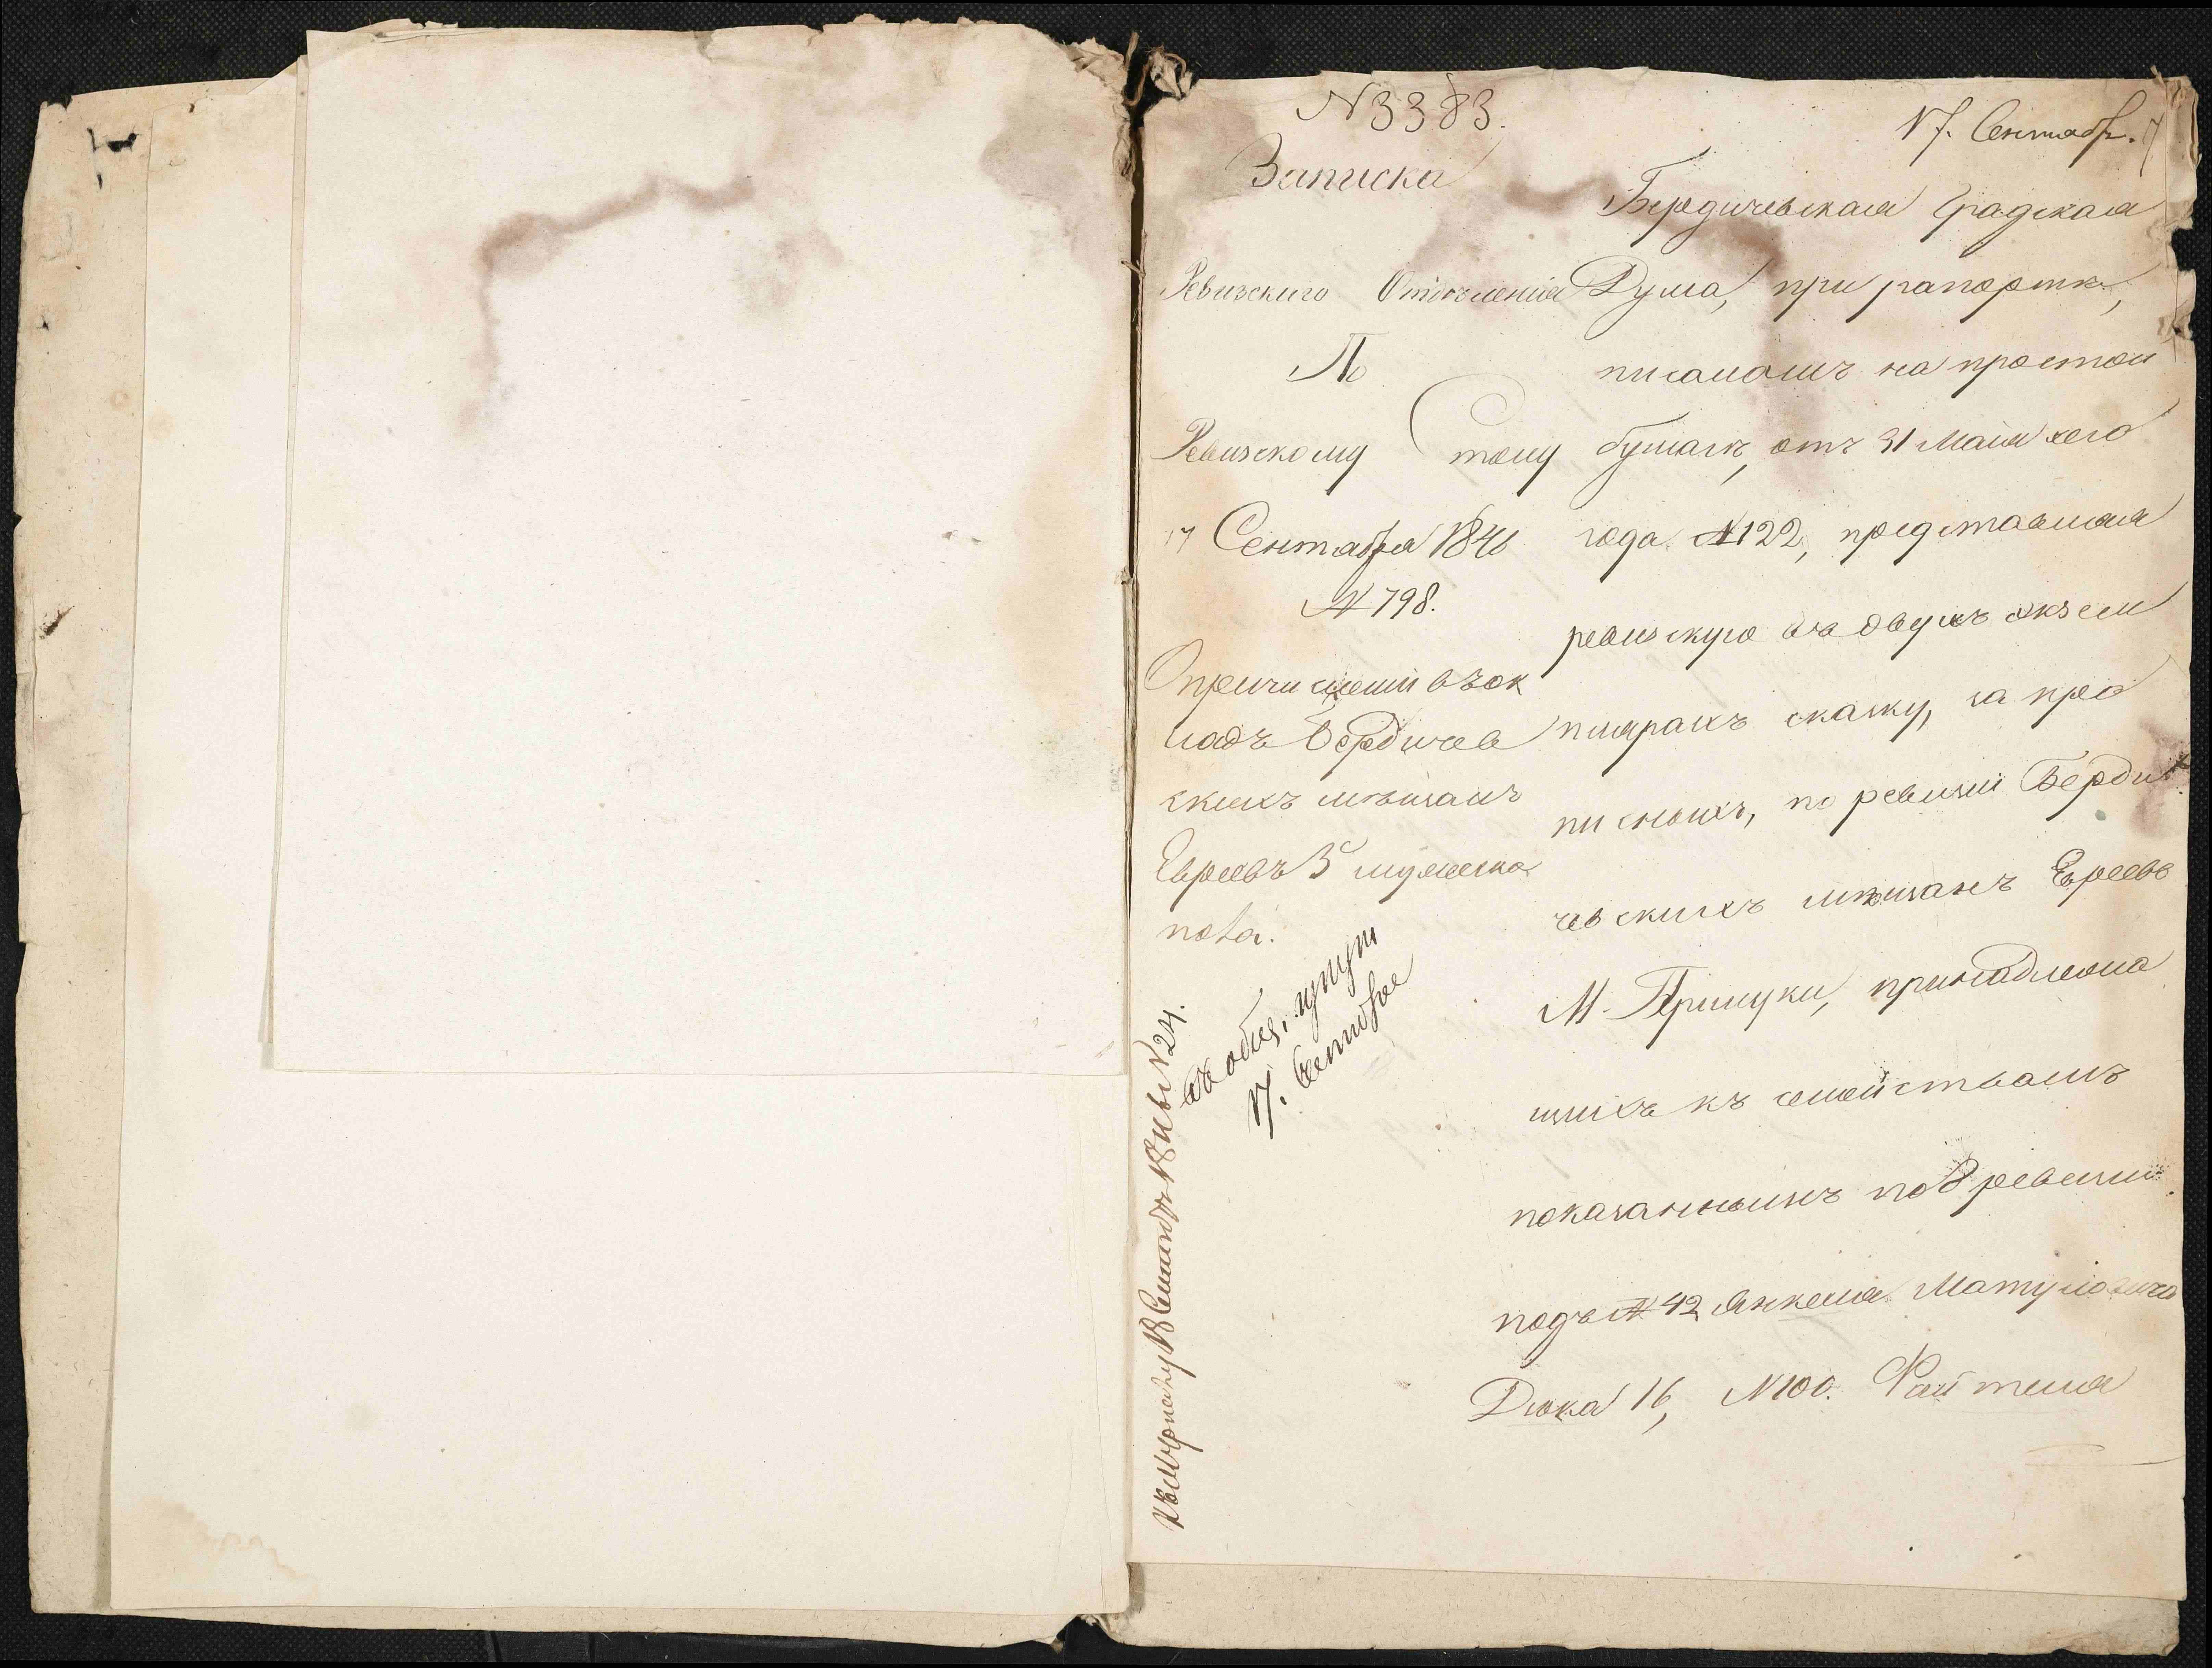 N 3383.
17. Сентябр.
Записка
Ревизскиго Отделенія
По
Ревизскому Столу
17 Сентября 1846
№ 798.
О причисленіи въ ок
ладъ Бердичев
скихъ мѣщанъ
Евреевъ 5 мужеска
пола.
17. Сентября
Бердичевская Градская
Дума, при рапортѣ,
писаномъ на простой
бумагѣ, отъ 31 Мая сего
года № 122, представила
ревизскую въ двухъ экзем
плярахъ сказку, на про
писныхъ, по ревизіи Берди
чевскихъ мѣщанъ Евреевъ
М. Прилуки, принадлежа
щихъ къ семействамъ
показаннымъ по 8 ревизіи
подъ № 42 Янкеля Матуловича
Дюка 16, N 100. Файтеля